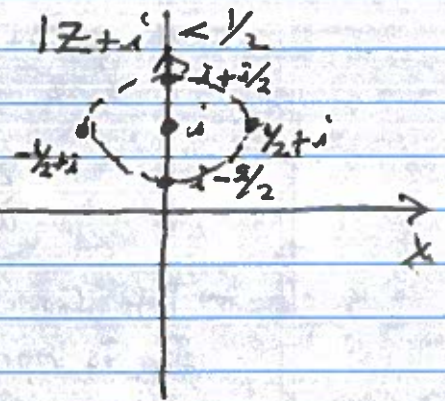 |z + i < 1/2
i + i/2
i
-1/2 + i
1/2 + i
i - i/2
x